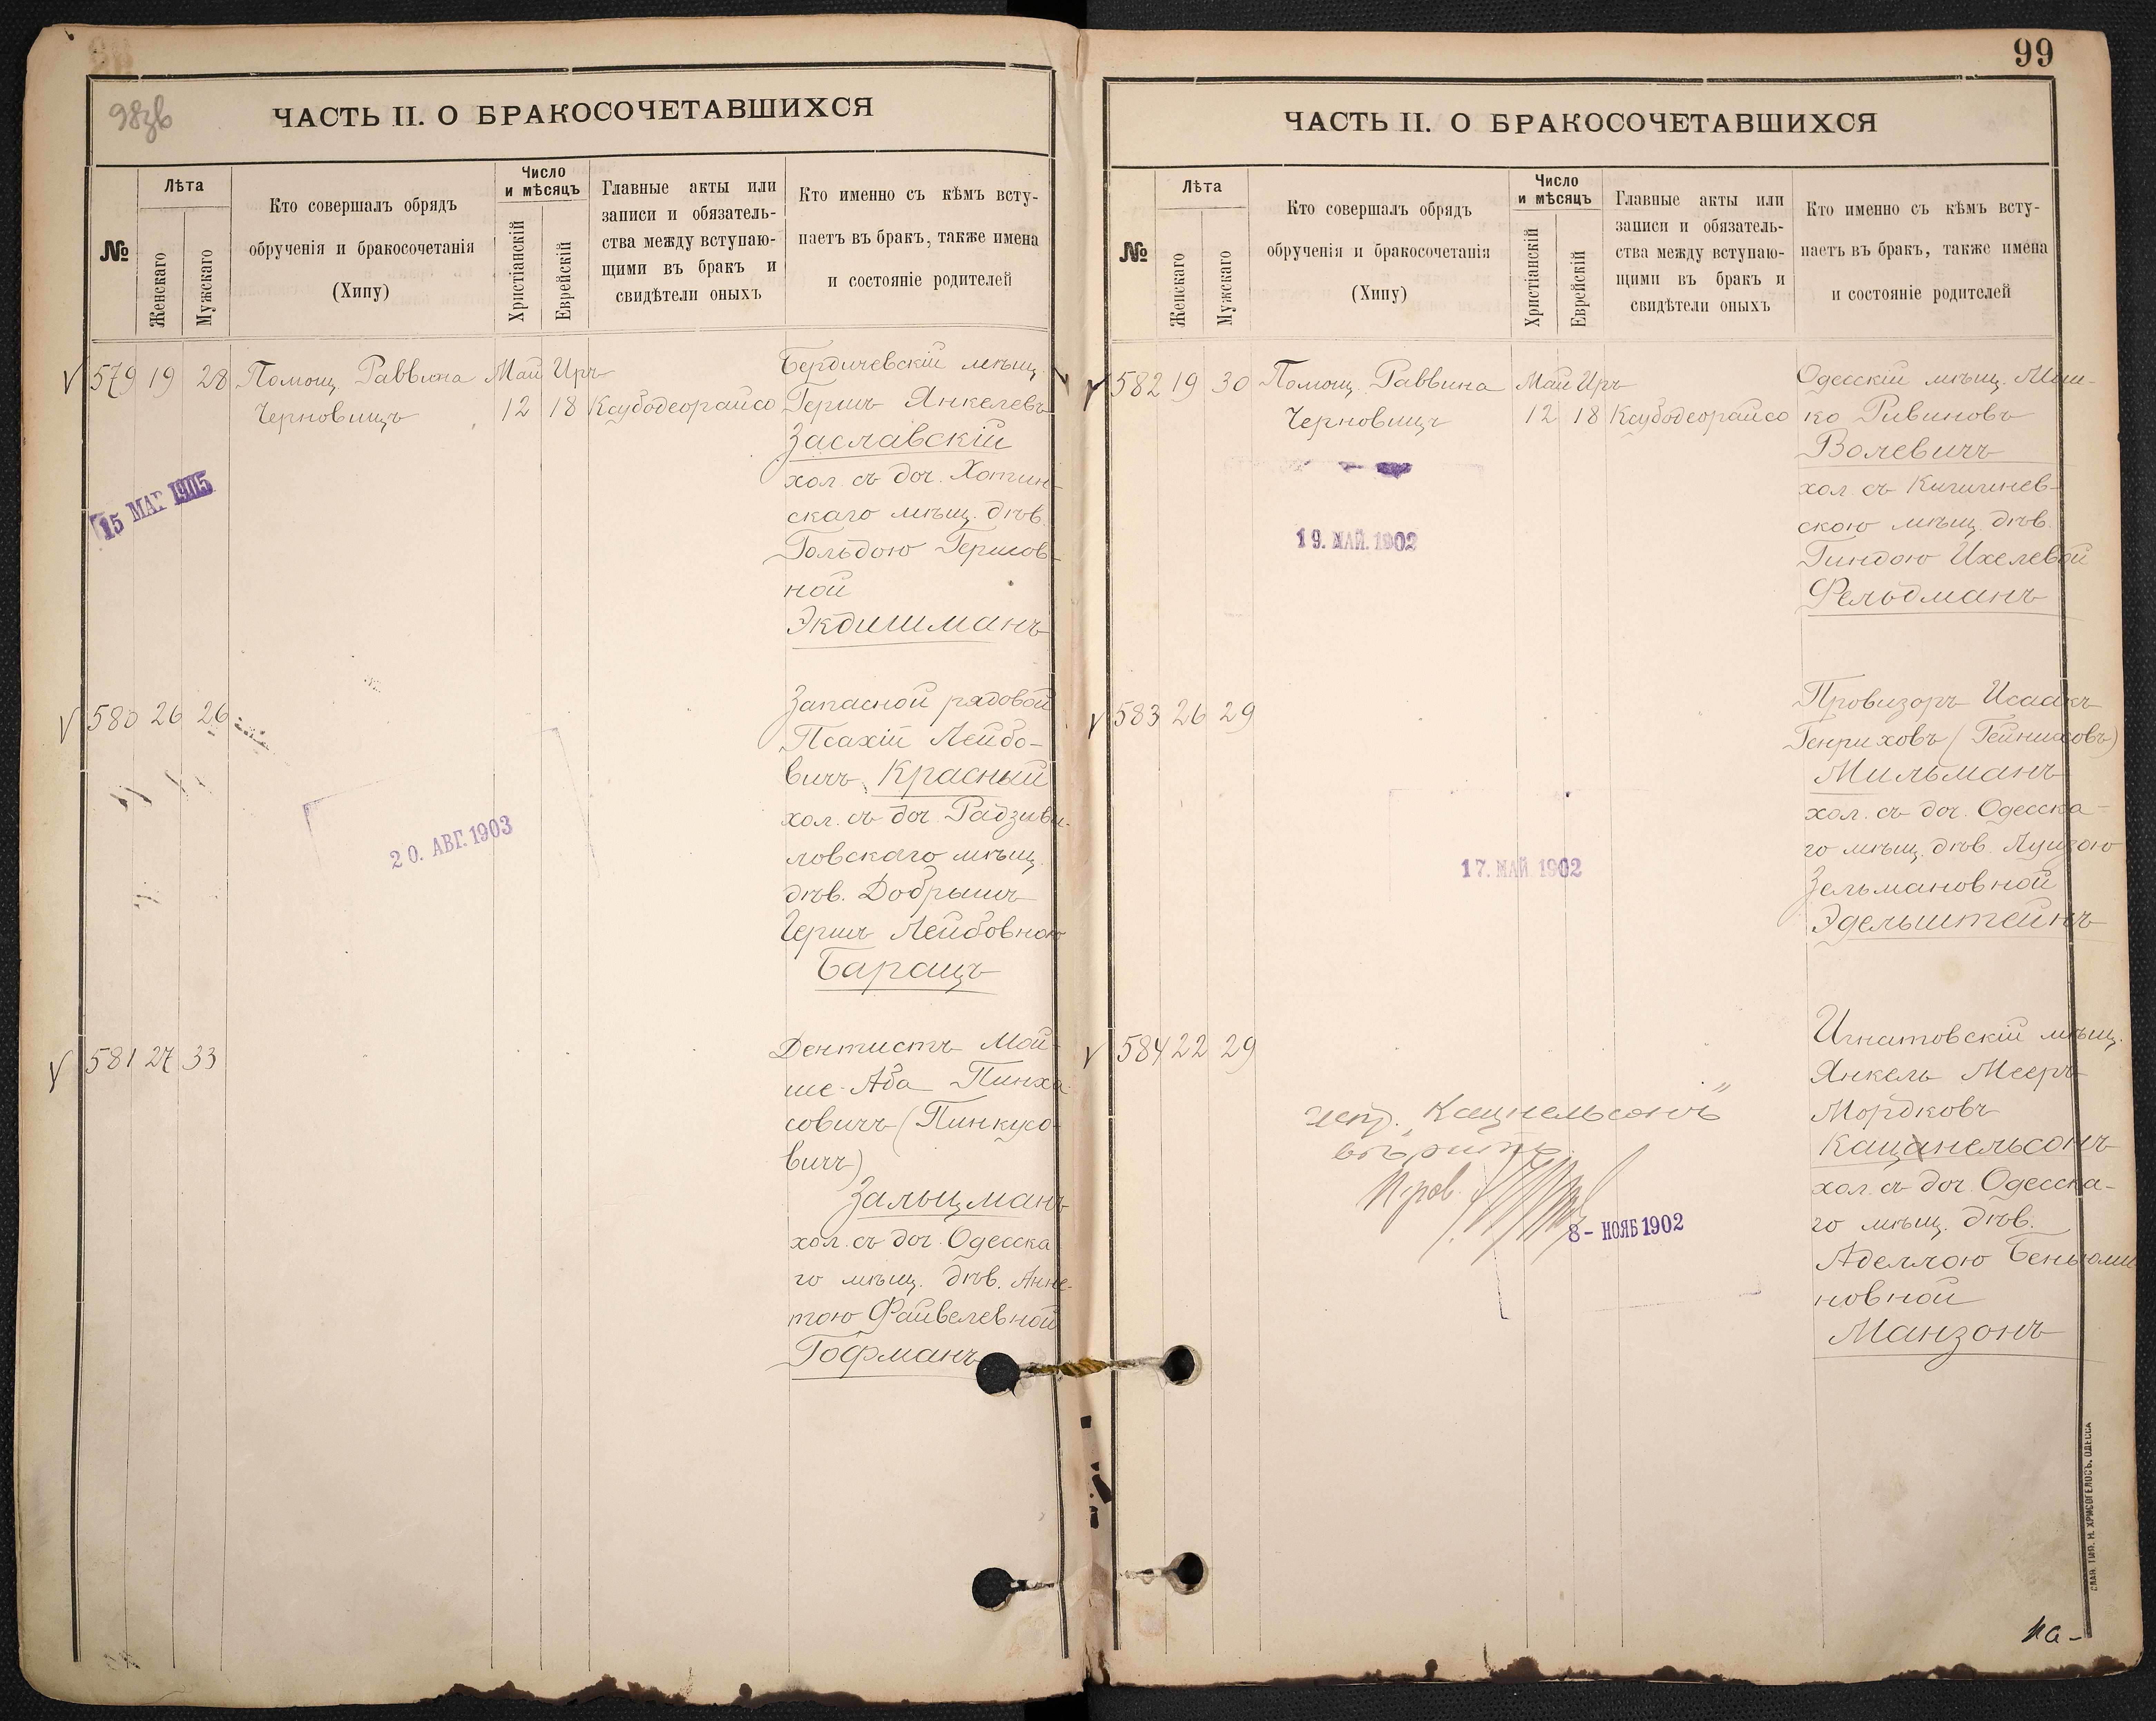 98зв
ЧАСТЬ II. О БРАКОСОЧЕТАВШИХСЯ
№
Лѣта
Женскаго
Мужскаго
Кто совершалъ обрядъ
обрученія и бракосочетанія
(Хипу)
Число
и мѣсяцъ
Христіанскій
Еврейскій
Главные акты или
записи и обязатель-
ства между вступаю-
щими въ бракъ и
свидѣтели оныхъ
Кто именно съ кѣмъ всту-
паетъ въ бракъ, также имена
и состояніе родителей
579 19 28 Помощ. Раввина Май Иръ
Черновицъ 12 18 Ксубодеорайсо
Бердичевскій мѣщ.
Гершъ Янкелевъ
Заславскій
хол. съ доч. Хотин-
скаго мѣщ. дѣв.
Гольдою Гершов-
ной
Экдишманъ
15 МАР 1905
580 26 26
Запасной рядовой
Псахій Лейбо-
вичъ Красный
хол. съ доч. Радзиви-
ловскаго мѣщ.
дѣв. Добрышъ
Герш Лейбовною
Баращъ
20. АВГ. 1903
581 27 33
Дентистъ Мой-
ше-Аба Пинха-
совичъ (Пинкусо-
вичъ)
Зальцманъ
хол. съ доч. Одесска
го мѣщ. дѣв. Анне-
тою Файвелевной
Гофманъ
99
ЧАСТЬ II. О БРАКОСОЧЕТАВШИХСЯ
№
Лѣта
Женскаго
Мужскаго
Кто совершалъ обрядъ
обрученія и бракосочетанія
(Хипу)
Число
и мѣсяцъ
Христіанскій
Еврейскій
Главные акты или
записи и обязатель-
ства между вступаю-
щими въ бракъ и
свидѣтели оныхъ
Кто именно съ кѣмъ всту-
паетъ въ бракъ, также имена
и состояніе родителей
582 19 30 Помощ. Раввина Май Иръ
Черновицъ 12 18 Ксубодеорайсо
Одесскій мѣщ. Мош-
ко Ривиновъ
Волевичъ
хол. съ Кишинев-
скою мѣщ. дѣв.
Гиндою Ихелевой
Фельдманъ
19. МАЙ. 1902
583 26 29
Провизоръ Исаакъ
Генриховъ (Гейниховъ)
Мильманъ
хол. съ доч. Одесска-
го мѣщ. дѣв. Луизою
Зельмановной
Эдельштейнъ
17. МАЙ 1902
584 22 29
Игнатовскій мѣщ.
Янкель Мееръ
Мордковъ
Кацанельсонъ
хол. съ доч. Одесска-
го мѣщ. дѣв.
Аделлою Беньоми
новной
Манзонъ
испр. „Кацнельсонъ“
вѣрить
8 - НОЯБ 1902
СЛАВ. ТИП. Н. ХРИСОГЕЛОСЪ. ОДЕССА